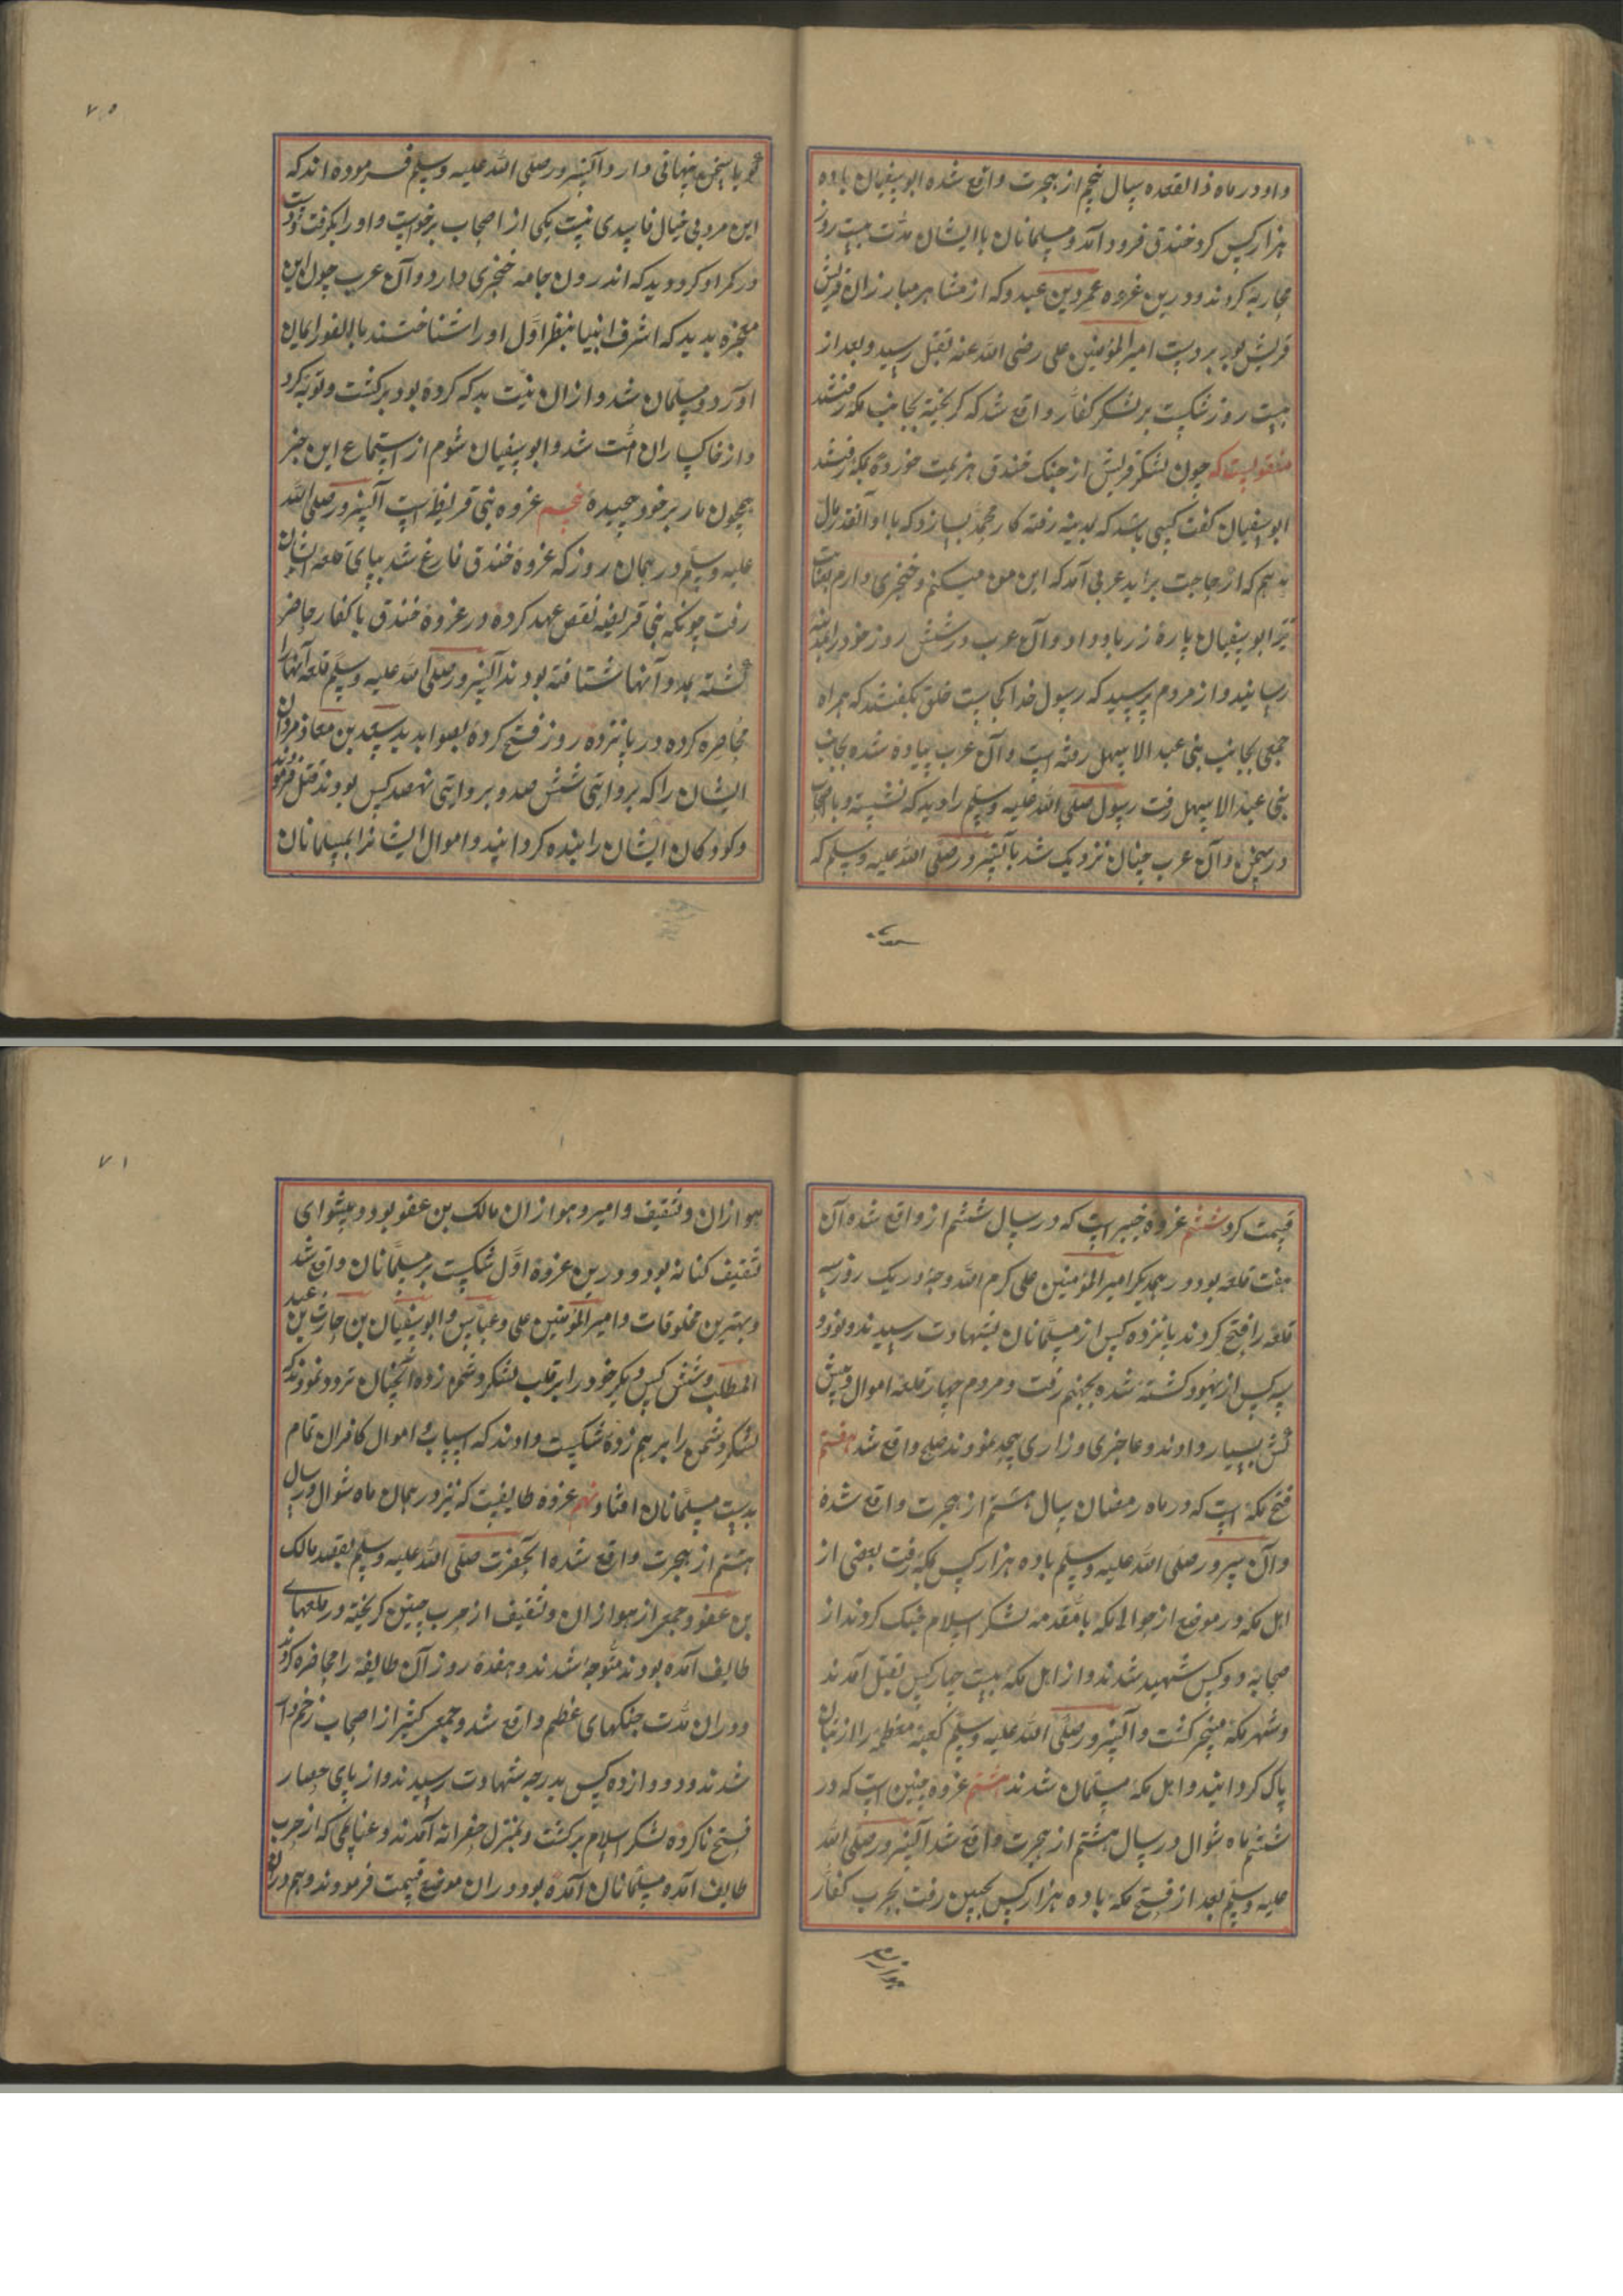 داد در ماه ذالقعده سال پنجم از هجرت واقع شده ابوسفیان باده
هزار کس گرد خندق فرود آمد و مسلمانان با ایشان مدت بیست روز
محاربه کردند و درین غزوه عمرو بن عبدود که از مشاهیر مبارزان قریش
قریش بود بر دست امیر المؤمنین علی رضی الله عنه بقتل رسید و بعد از
بیست روز شکست بر لشکر کفار واقع شد که گریخته بجانب مکه رفتند
منقولست که چون لشکر قریش از جنک خندق هزیمت خورده بمکه رفتند
ابوسفیان گفت کسی باشد که بمدینه رفته کار محمد بسازد که با او آنقدر مال
بدهم که از حاجت براید عربی آمد که این من میکنم و خنجری دارم بغایت
تیز ابوسفیان پارهٔ زر باو داد و آن عرب در شش روز خود را بمدینه
رسانید و از مردم پرسید که رسول خدا کجاست خلق بگفتند که همراه
جمعی بجانب بنی عبد الاسهل رفته است و آن عرب پیاده شده بجانب
بنی عبد الاسهل رفت رسول صلی الله علیه وسلم را دید که نشسته و با اصحاب
در سخن و آن عرب چنان نزدیک شد بآنسرور صلی الله علیه وسلم که
۷۰
گویا سخن پنهانی دارد آنسرور صلی الله علیه وسلم فرموده اند که
این مرد بی خیال فاسدی نیست یکی از اصحاب برخواست و او را بگرفت و دست
در کمر او کرد و دید که اندرون جامه خنجری دارد و آن عرب چون این
معجزه بدید که اشرف انبیا بنظر اول او را شناختند بالفور ایمان
آورد و مسلمان شد و از ان نیت بد که کرده بود برگشت و توبه کرد
و از خاکساران امت شد و ابوسفیان شوم از استماع این خبر
همچون مار بر خود پیچیده پنجم غزوه بنی قریظه است آنسرور صلی الله
علیه وسلم در همان روز که غزوهٔ خندق فارغ شد بپای قلعه ایشان
رفت چونکه بنی قریظه نقض عهد کرده در غزوهٔ خندق با کفار حاضر
گشته بمدد آنها شتافته بودند آنسرور صلی الله علیه وسلم قلعه آنها را
محاصره کرده در پانزده روز فتح کرده بصوابدید سعد بن معاذ مردان
ایشان را که بروایتی شش صد و بروایتی نهصد کس بودند قتل فرمودند
و کودکان ایشان را بنده کردانیدند و اموال ایشانرا بمسلمانان
قسمت کرد ششم غزوهٔ خیبر است که در سال ششم از واقع شده آن
هفت قلعه بود در همدیگر امیر المؤمنین علی کرم الله وجهه در یک روز سه
قلعه را فتح کردند پانزده کس از مسلمانان بشهادت رسیدند و نود و
سه کس از یهود کشته شده بجهنم رفت و مردم چهار قلعه اموال و پیش
کش بسیار دادند و عاجزی و زاری بیحد نمودند صلح واقع شد هفتم
فتح مکه است که در ماه رمضان سال هشتم از هجرت واقع شده
و آن سرور صلی الله علیه وسلم باده هزار کس بمکه رفت بعضی از
اهل مکه در موضع از حوالی مکه با مقدمه لشکر اسلام جنک کردند از
صحابه دو کس شهید شدند و از اهل مکه بیست چهار کس بقتل آمدند
و شهر مکه مسخر گشت و آنسرور صلی الله علیه وسلم کعبهٔ معظمه را از بتان
پاک کردانید و اهل مکه مسلمان شدند هشتم غزوه حنین است که در
ششم ماه شوال در سال هشتم از هجرت واقع شد آنسرور صلی الله
علیه وسلم بعد از فتح مکه باده هزار کس بحنین رفت بحرب کفار
هوازن
۷۱
هوازان و ثقیف و امیر و هوازان مالک بن عفو بود و پیشوای
ثقیف کنانه بود و درین غزوهٔ اول شکست بر مسلمانان واقع شد
و بهترین مخلوقات و امیر المؤمنین علی و عباس و ابوسفیان بن حارث بن عبد
المطلب و شش کس دیگر خود را بر قلب لشکر دشمن زده آنچنان تردد نمودند که
لشکر دشمن را بر هم زده شکست دادند که اسباب و اموال کافران تمام
بدست مسلمانان افتاد نهم غزوهٔ طایفست که نیز در همان ماه شوال در سال
هشتم از هجرت واقع شده آنحضرت صلی الله علیه وسلم بقصد مالک
بن عفو و جمعی از هوازان و ثقیف از حرب حنین گریخته در قلعهای
طایف آمده بودند متوجه شدند و هفده روز آن طایفه را محاصره کردند
و در ان مدت جنکهای عظیم واقع شد و جمعی کثیر از اصحاب زخم دار
شدند و دوازده کس بدرجهٔ شهادت رسیدند و از پای حصار
فتح ناکرده لشکر اسلام برگشت و بمنزل جعرانه آمدند و غنایمی که از حرب
طایف آمده مسلمانان آمده بود در ان موضع قسمت فرمودند و هم دران